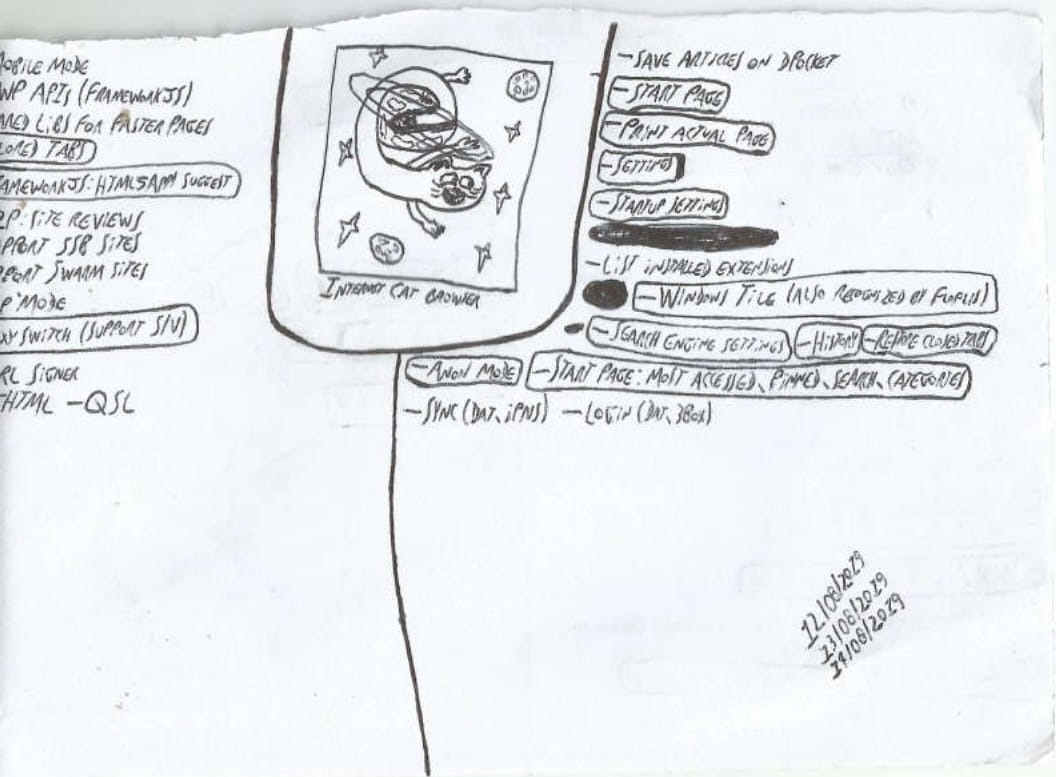 OBILE MODE
WP APIs (FRAMEWORKJS)
ARED LIBS FOR FASTER PAGES
LORED TABS
RAMEWORKJS: HTML5APP SUGGEST
2P: SITE REVIEWS
PPORT SSB SITES
PPORT SWARM SITES
P MODE
XY SWITCH (SUPPORT S/V)
RL SIGNER
HTML - QSL
INTERNET CAT BROWSER
- SAVE ARTICLES ON DPOCKET
- START PAGE
- PRINT ACTUAL PAGE
- SETTINGS
- STARTUP SETTINGS
- LIST INSTALLED EXTENSIONS
- WINDOWS TILE (ALSO RECOGNIZED BY )
- SEARCH ENGINE SETTINGS - HISTORY - RESTORE CLOSED TABS
- ANON MODE - START PAGE: MOST ACCESSED, PINNED, SEARCH, CATEGORIES
- SYNC (DAT, IPNS) - LOGIN (DAT, 3BOX)
12/08/2019
13/08/2019
14/08/2019